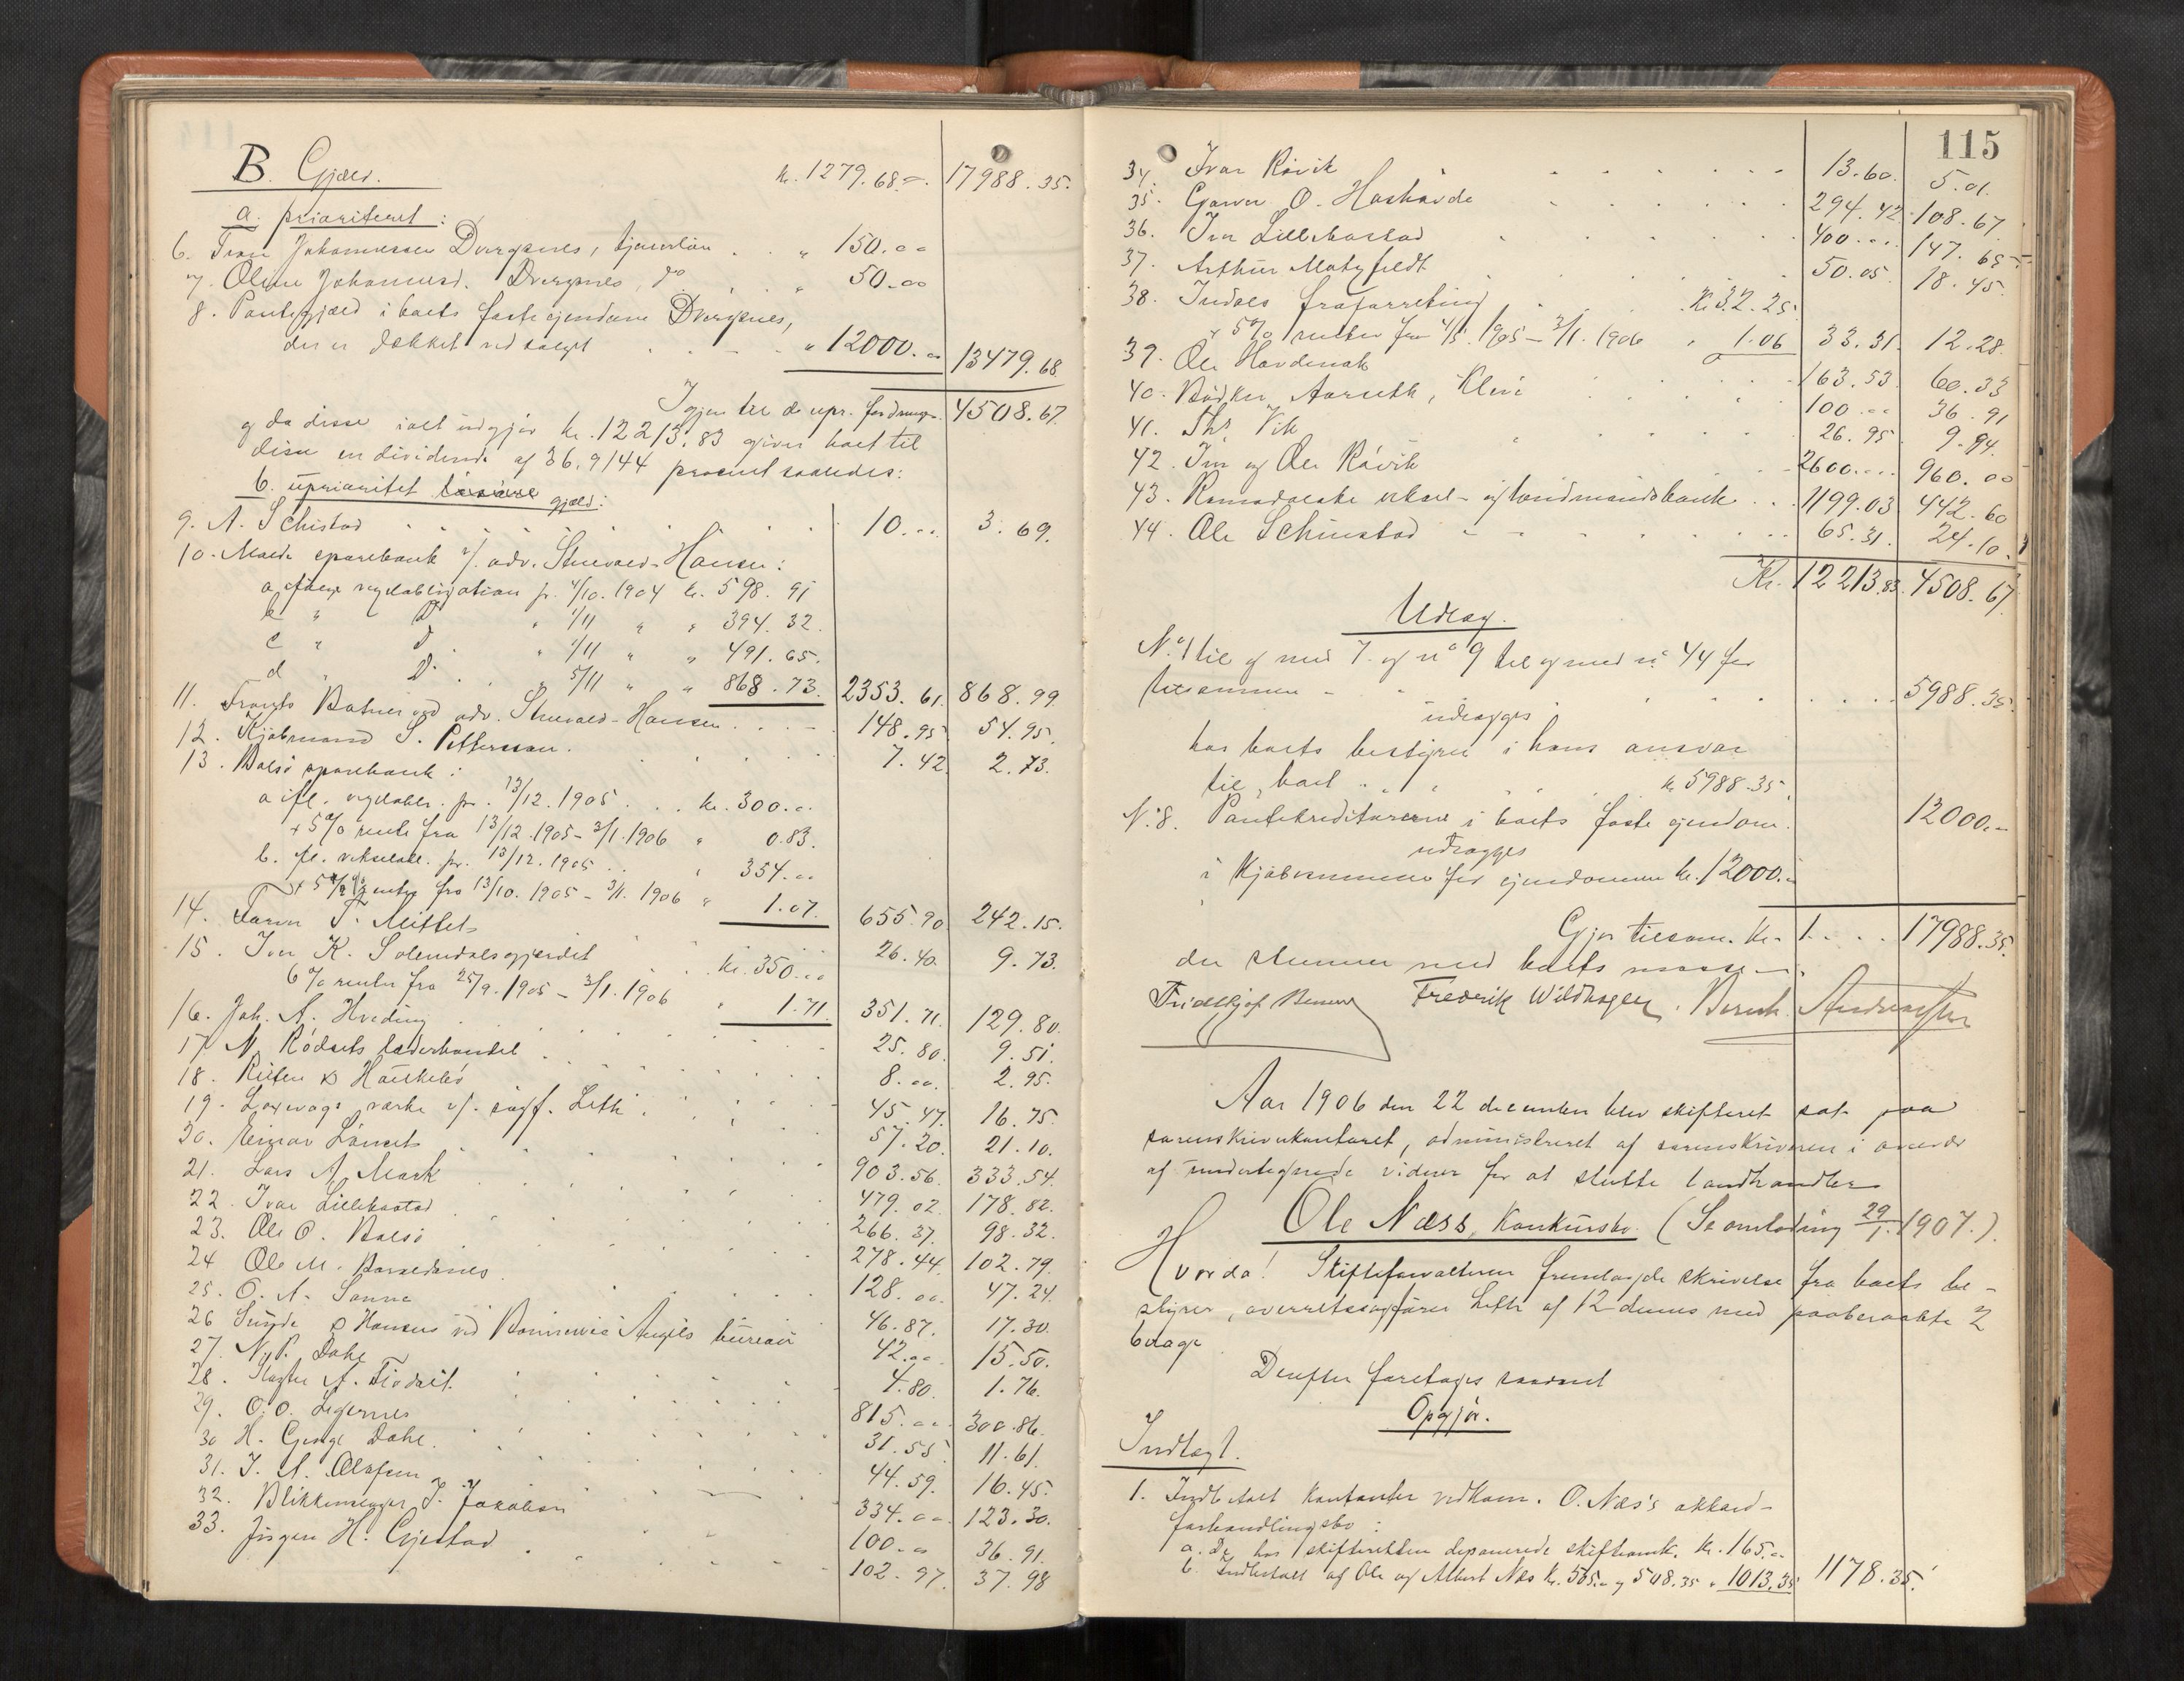 B. Gjæld. kr. 1279.68 17988.35.
a. prioriteret:
6. Johannessen Dvergsnes, tjenerløn " 150.00
7. Oline Johannesd. Dvergsnes, do " 50.00
8. Pantegjæld i boets faste eiendom Dvergsnes,
der er dækket ved salget " 12000.00 13479.68
Igjen til de upr. fordringer 4508.67
og da disse ialt udgjør kr. 12213.83 giver boet til
disse en dividende af 36,9144 procent saaledes:
b. uprioritet gjæld:
9. A. Schistad 10.00 3.69.
10. Molde sparebank v/. adv. Stuevold-Hansen:
a. ifølge vexelobligation pr. 4/10. 1904 kr. 598.91
b " D " 1/11 " " 394.32.
c " D " 1/11 " " 491.65.
d " D. " 5/11 " " 868.73. 2353.61. 868.99
11. ved adv. Stuevold-Hansen 148.95 54.95.
12. Kjøbmand S. Pettersson. 7.42. 2.73.
13. Bolsø sparebank:
a ifl. vexelobl. pr. 13/12. 1905 kr. 300.00
+ 5% rente fra 13/12. 1905 - 3/1. 1906 " 0.83.
b. ifl. vekselobl. pr. 13/12. 1905 " 354.00
+ 5 1/2 % rente fra 13/10. 1905 - 3/1. 1906 " 1.07. 655.90 242.15.
14. T. Mittet 26.40. 9.73.
15. Iver K. Solemdalsgjerdet kr. 350.00
6% renter fra 25/9. 1905 - 3/1. 1906 " 1.71. 351.71. 129.80.
16. Joh. A. Hveding 25.80. 9.51.
17 N. Rødsets læderhandel 8.00. 2.95.
18. & Houkebø 45.47. 16.75.
19. værke v/. sagf. Leth 57.20. 21.10.
20. Einar Lönset 903.56. 333.54.
21. Lars A. Mork 479.02. 178.82.
22. Ivar Lillebostad 266.37. 98.32.
23. Ole O. Bolsø 278.44. 102.79.
24 Ole M. 128.00. 47.24.
25. O. A. Sanne 46.87. 17.30.
26 Sunde & Hansen ved Bureau 42.00 15.50.
27. N. P. Dahl 4.80. 1.76.
28. A. 815.00 300.86.
29. O. O. Legernes 31.55 11.61.
30 H. George Dahl. 44.59. 16.45.
31. J. A. Olafsen 334.00 123.30.
32. Blikkenslager J. Jakobsen 100.00 36.91.
33. Jørgen H. Gjestad 102.97. 37.98
115
34. Ivar Røvik 13.60. 5.01.
35. Garver O. Haskavde 294.42 108.67
36. Iver Lillebostad 400.00 147.65
37. Arthur Motzfeldt 50.05. 18.45.
38. Indals Kr. 32.25
+ 5% renter fra 4/5. 1905 - 3/1. 1906 " 1.06 33.31. 12.28.
39. Ole Hovdenak 163.53 60.33
40. Bødker Aarseth, Kleive 100.00 36.91
41. Ths. Vik 26.95 9.94.
42. Iver og Ole Røvik 2600.00 960.00
43. Romsdalske veksel- og landmandsbank 1199.03 442.60
44. Ole Schinstad 65.31. 24.10.
Kr. 12213.83. 4508.67.
Udlæg.
No 1 til og med 7. og no 9 til og med no 44 faar
tilsammen 5988.35.
udlægges
hos boets bestyrer i hans ansvar
til boet kr. 5988.35.
No 8. Pantekreditorerne i boets faste eiendom. 12000.00
udlægges
i kjøbesummen for eiendommen kr. 12000.00
Gjør tilsam. kr. 17988.35.
der stemmer med boets masse.
Fredrik Wildhagen.
Aar 1906 den 22 december blev skifteret sat paa
sorenskriverkontoret, administreret af sorenskriveren i overvær
af undertegnede vidner for at slutte landhandler
Ole Næss, konkursbo. (Se omlodning 29/1. 1907.).
Hvorda! Skifteforvalteren fremlagde skrivelse fra boets be-
styrer, overretssagfører Leth af 12 dennes med paaberaabte 2
bilage.
Derefter foretages saadant
Opgjør.
Indtægt.
1. Indbetalt kontanter vedkom. O. Næs's akkord-
forhandlingsbo:
a. De hos skifteretten deponerede skifteomk. kr. 165.00
b. Indbetalt af Ole og Albert Næs kr. 505.00 og 508.35 " 1013.35 1178.35.